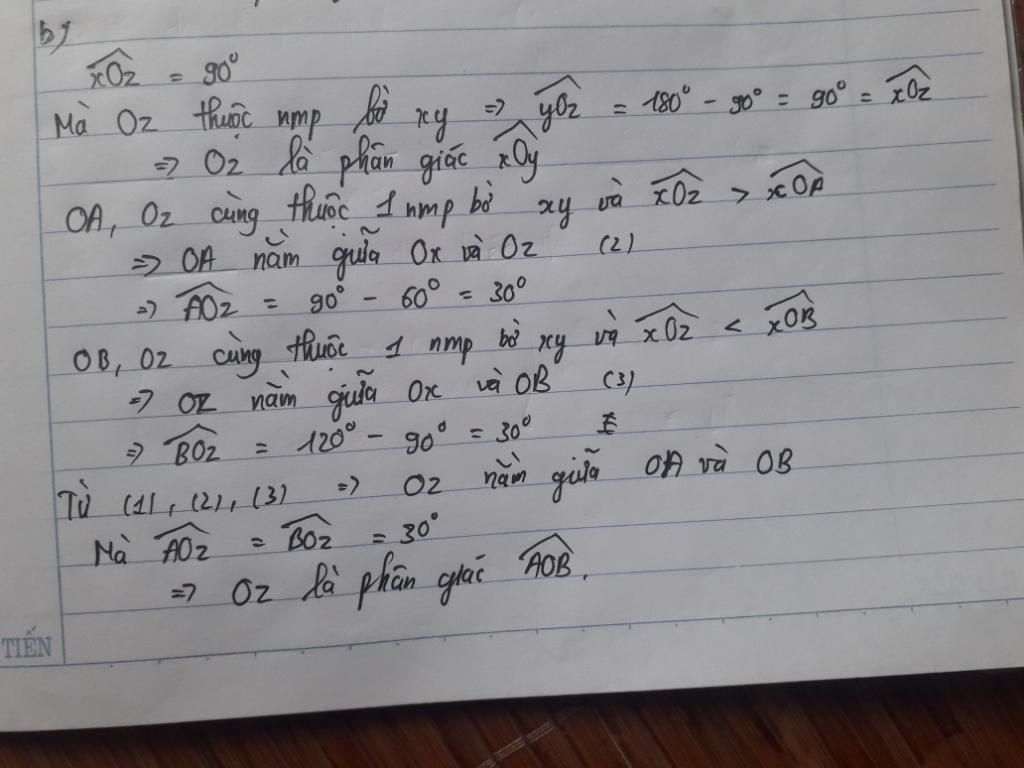 b)
x̂Oz = 90°
Mà Oz thuộc nmp bờ xy => ŷOz = 180° - 90° = 90° = x̂Oz
=> Oz là phân giác x̂Oy
OA, Oz cùng thuộc 1 nmp bờ xy và x̂Oz > x̂OA
=> OA nằm giữa Ox và Oz (2)
=> ÂOz = 90° - 60° = 30°
OB, Oz cùng thuộc 1 nmp bờ xy và x̂Oz < x̂OB
=> Oz nằm giữa Ox và OB (3)
=> B̂Oz = 120° - 90° = 30°
Từ (1), (2), (3) => Oz nằm giữa OA và OB
Mà ÂOz = B̂Oz = 30°
=> Oz là phân giác ÂOB.
TIẾN